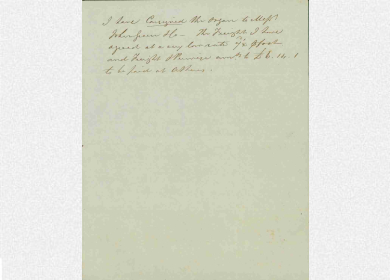 I have Consigned the Organ to Messrs
& Co — The Freight I have
agreed at a very low rate 7/6 pfoot
and Freight & Primage amts to £6.14.1
to be paid at Athens.